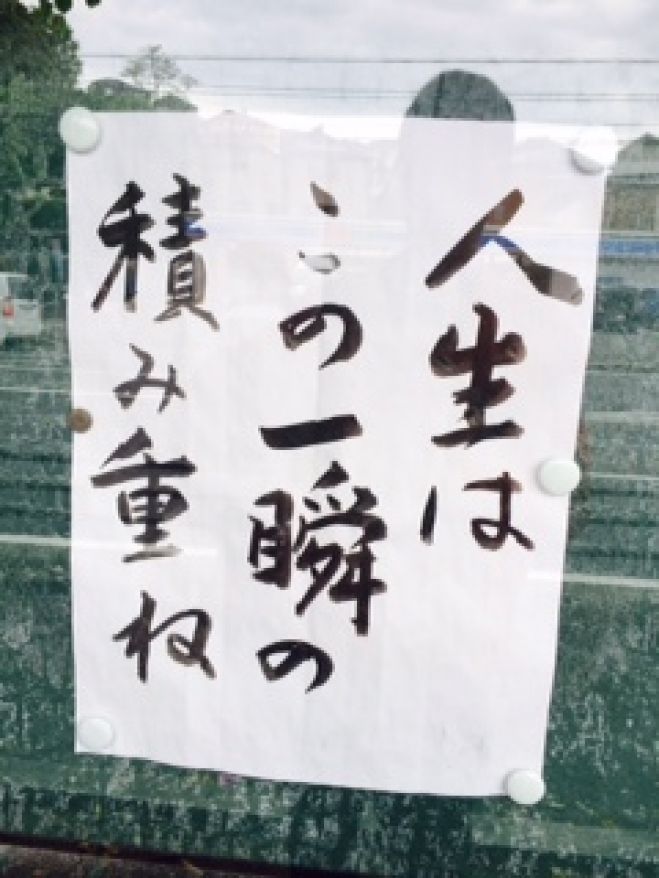 人生は
この一瞬の
積み重ね